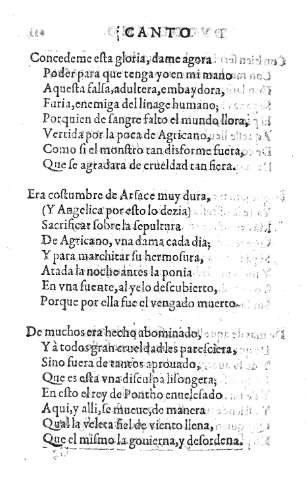 CANTO
Concedeme esta gloria, dame agora
Poder para que tenga yo en mi mano
Aquesta falsa, adultera, embaydora,
Furia, enemiga del linage humano;
Porquien de sangre falto el mundo llora,
Vertida por la poca de Agricano,
Como si el monstro tan disforme fuera,
Que se agradara de crueldad tan fiera.
Era costumbre de Arsace muy dura,
(Y Angelica por esto lo dezia)
Sacrificar sobre la sepultura
De Agricano, vna dama cada dia;
Y para marchitar su hermosura,
Atada la noche antes la ponia
En vna fuente, al yelo descubierto,
Porque por ella fue el vengado muerto.
De muchos era hecho abominado,
Y à todos gran crueldad les paresciera,
Sino fuera de tantos aprouado,
Que es esta vna disculpa lisongera;
En esto el rey de Pontho enuelesado
Aqui, y alli, se mueue, de manera
Qual la veleta fiel de viento llena,
Que el mismo la gouierna, y desordena.